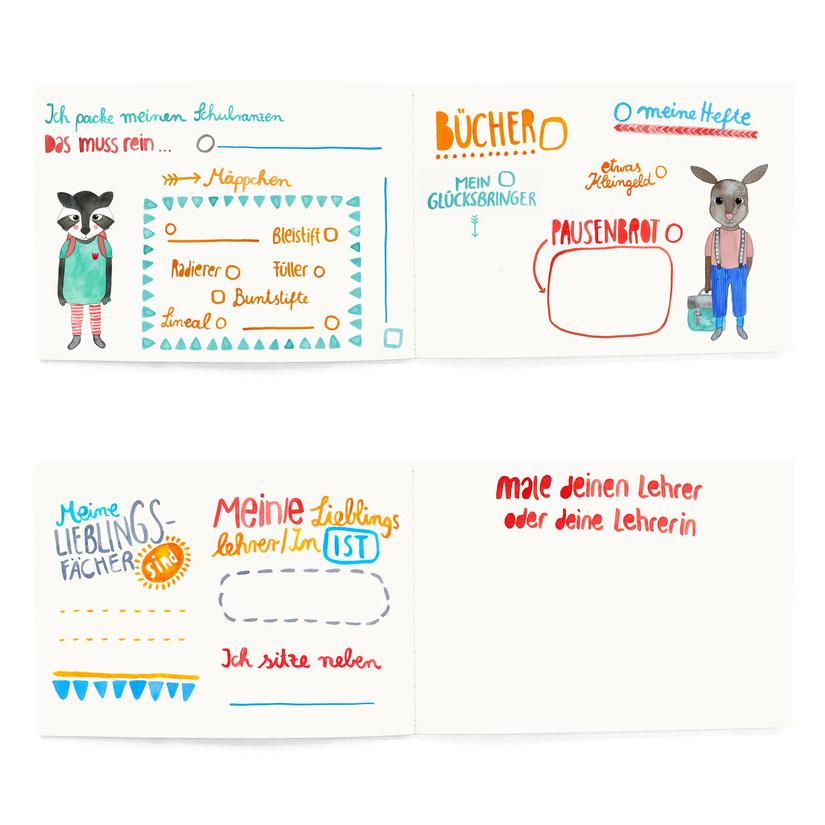 Ich packe meinen Schulranzen
Das muss rein...
Mäppchen
Bleistift
Radierer
Füller
Buntstifte
Lineal
BÜCHER
meine Hefte
MEIN
GLÜCKSBRINGER
etwas
Kleingeld
PAUSENBROT
Meine
LIEBLINGS-
FÄCHER SIND
Mein/e Lieblings
lehrer/In IST
Ich sitze neben
Male deinen Lehrer
oder deine Lehrerin